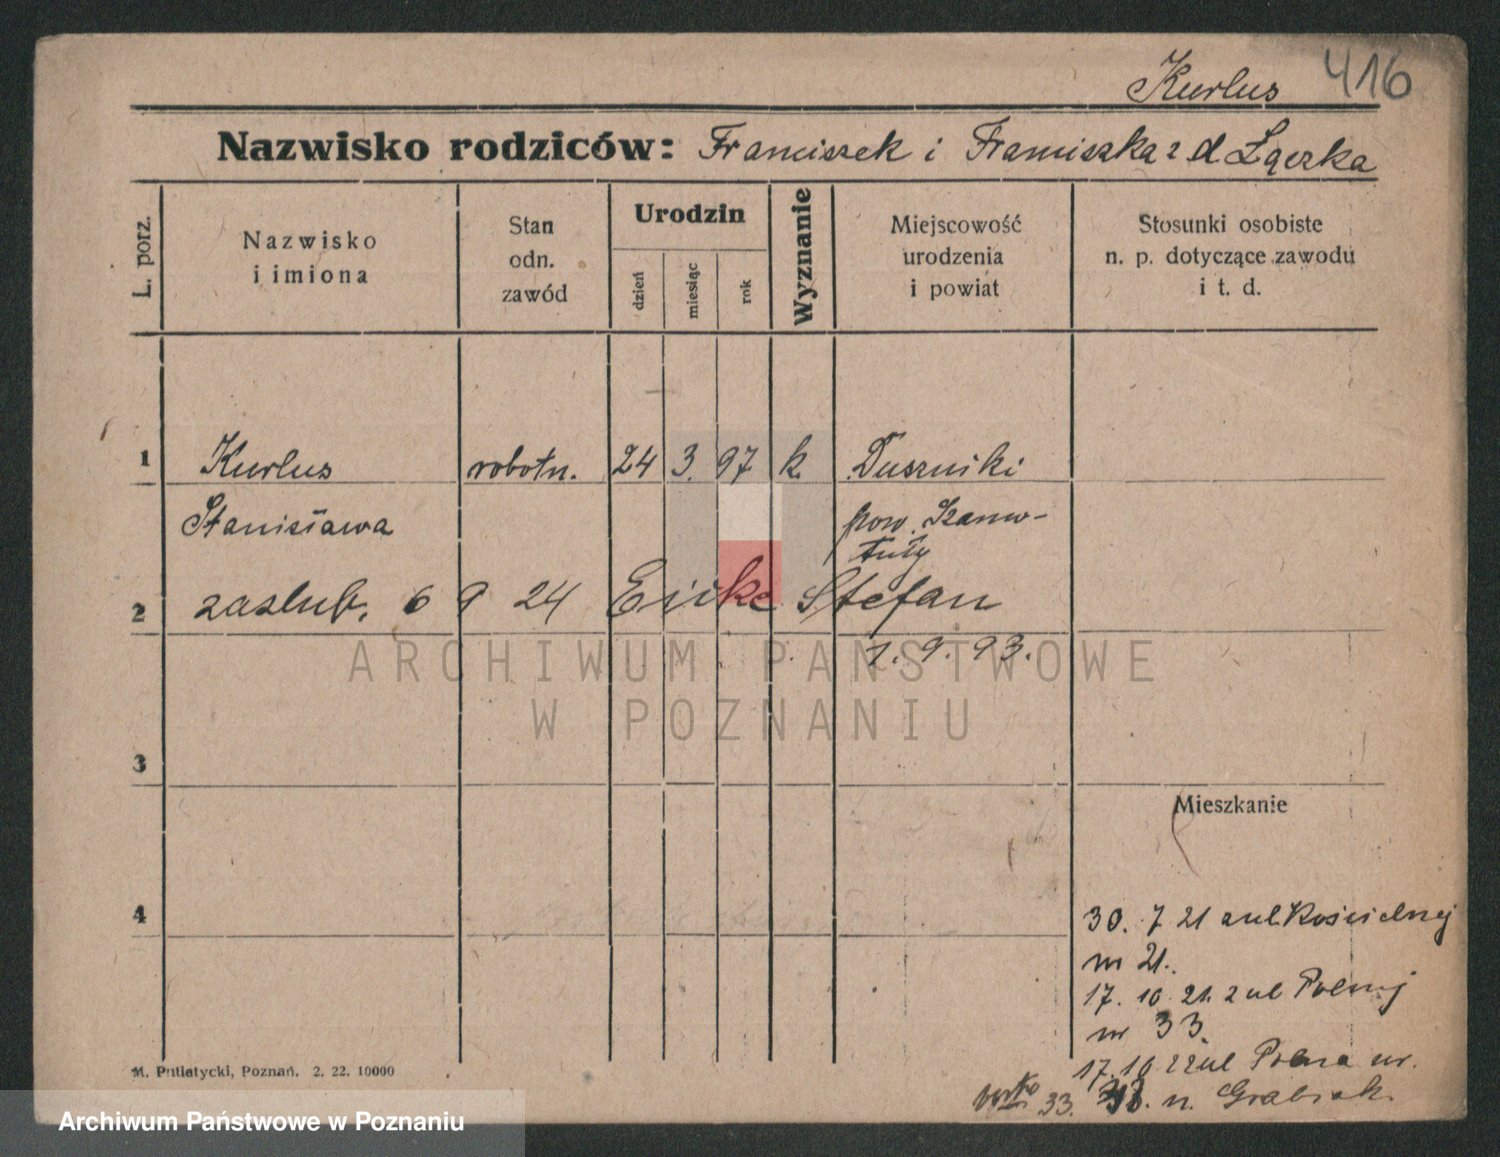 Kurlus 416
Nazwisko rodziców: Franciszek i Franciszka z d Łączka
L. porz.
Nazwisko
i imiona
Stan
odn.
zawód
Urodzin
dzień
miesiąc
rok
Wyznanie
Miejscowość
urodzenia
i powiat
Stosunki osobiste
n. p. dotyczące zawodu
i t. d.
1 Kurlus robotn. 24 3. 97 k. Duszniki
Stanisława pow. Szamo-
tuły
2 zaślub. 6 9 24 Stefan
1. 9. 93.
ARCHIWUM PAŃSTWOWE
W POZNANIU
3
Mieszkanie
4
30. 7 21 z ul. Kościelnej
nr 21.
17. 10. 21. z ul Polnej
nr 33.
17. 10 22 ul Polna nr.
33. n. Grabiak.
M. Putiatycki, Poznań. 2. 22. 10000
Archiwum Państwowe w Poznaniu